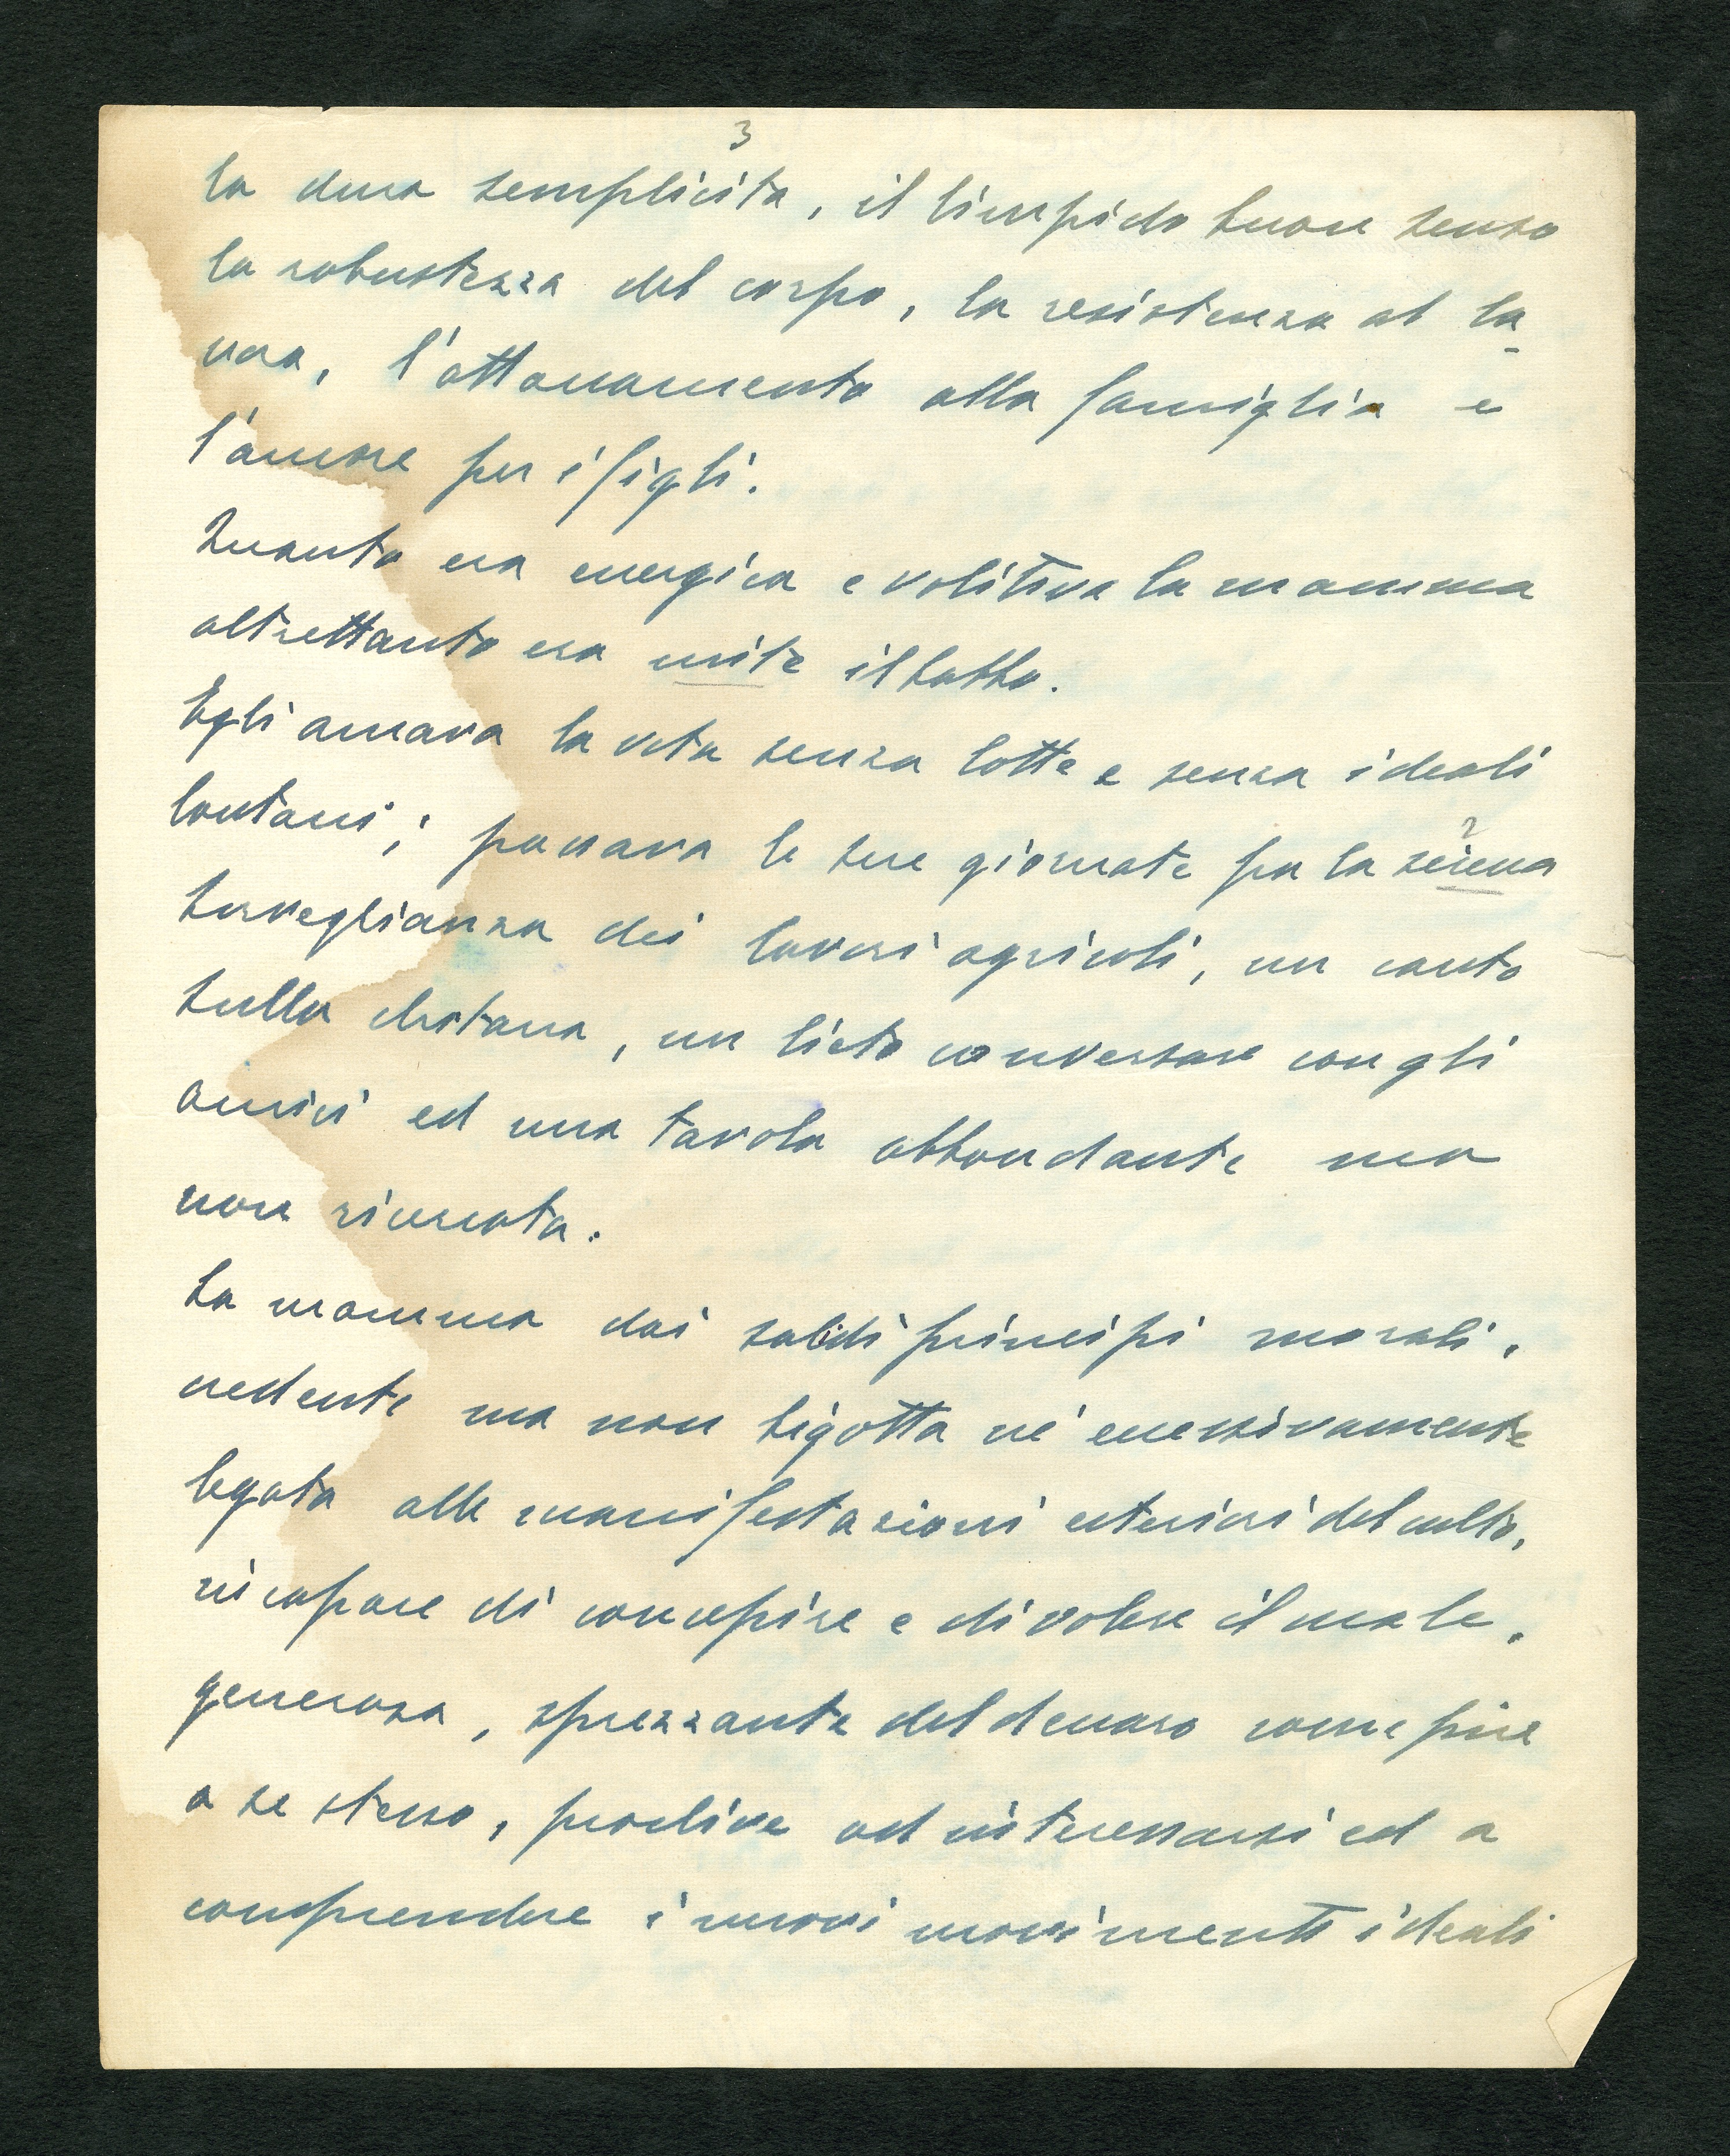 3
la dura semplicità, il limpido buon senso
la robustezza del corpo, la resistenza al la-
voro, l'attaccamento alla famiglia e
l'amore per i figli.
Quanto era energica e volitiva la mamma
altrettanto era mite il babbo.
Egli amava la vita senza lotte e senza ideali
lontani; passava le sue giornate fra la serena ?
sorveglianza dei lavori agricoli, un canto
sulla chitarra, un lieto conversare con gli
amici ed una tavola abbondante ma
non ricercata.
La mamma dai saldi principi morali,
credente ma non bigotta nè eccessivamente
legata alle manifestazioni esteriori del culto,
incapace di concepire e di volere il male,
generosa, sprezzante del denaro come fine
a se stesso, proclive ad interessarsi ed a
comprendere i nuovi movimenti ideali